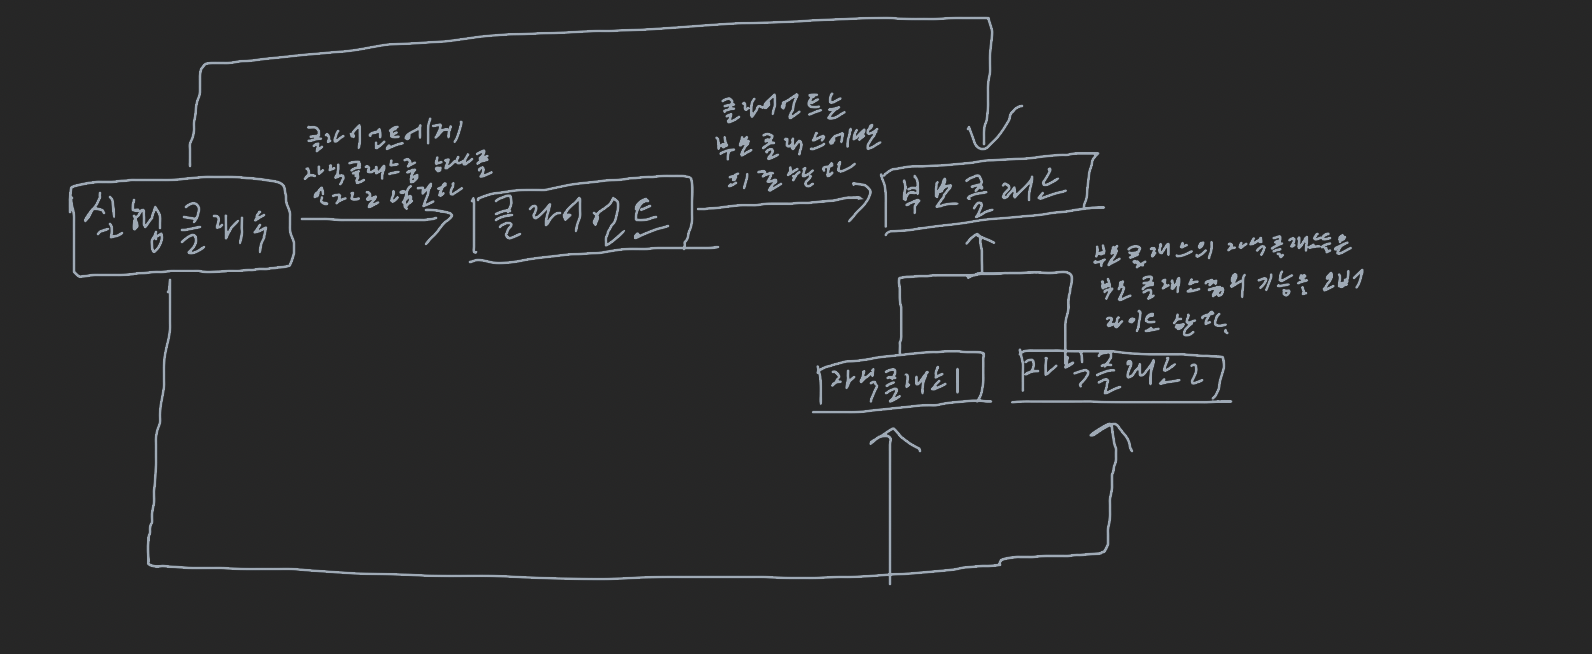 클라이언트에게
자식클래스중 하나를
인자로 넘긴다
클라이언트는
부모 클래스에만
의존한다
실행 클래스
클라이언트
부모클래스
부모클래스의 자식클래스들은
부모 클래스의 기능을 오버
라이드 한다.
자식클래스1
자식클래스2